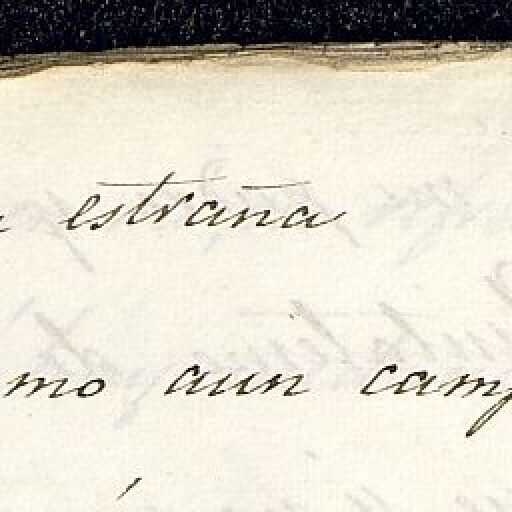 estraña
mo aun camp